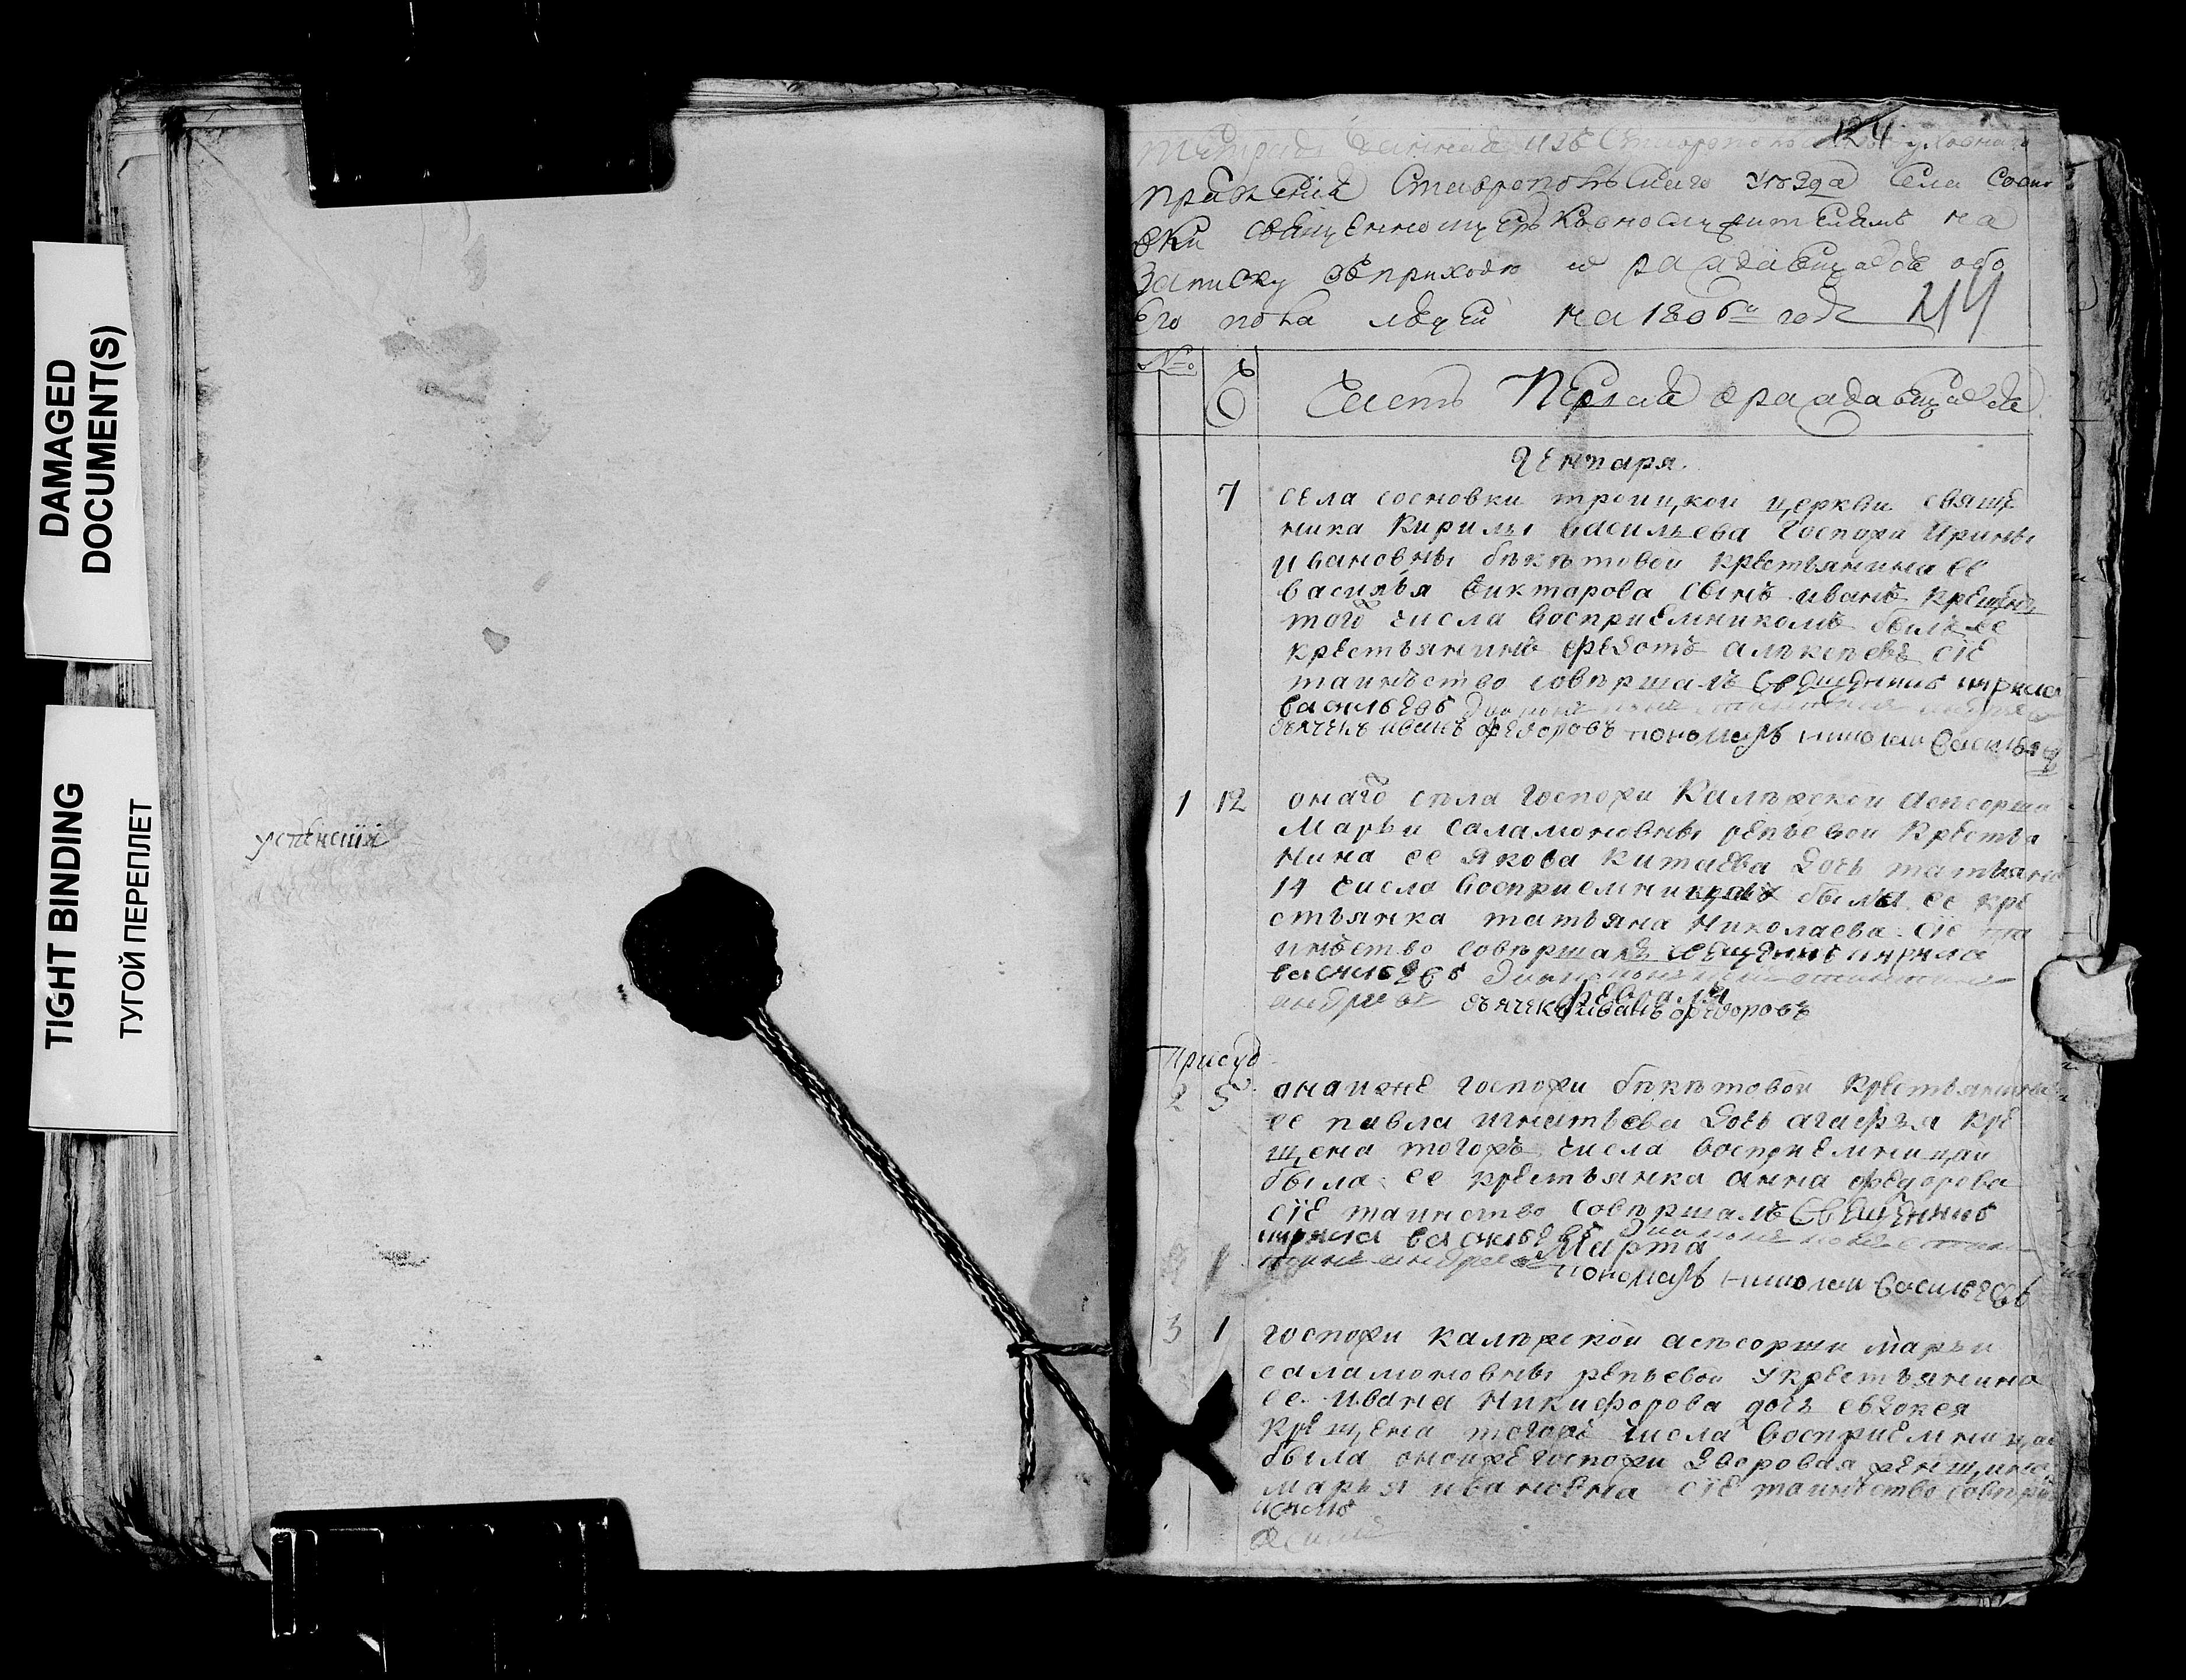 DAMAGED
DOCUMENT(S)
TIGHT BINDING
ТУГОЙ ПЕРЕПЛЕТ
успенский
124
тетрадь данная изъ Ставропольскаго духовнаго
правления Ставропольскаго уезда села Сосно
вки священноцерковнослужителямъ на
записку въприходе о раждающихся обо
его пола людей на 1806й годъ
214
№
Часть Первая ораждающихся
Генъваря
7 села сосновки троицкой церкви свяще
ника Кирилы Васильева Госпожи Ирины
Ивановны бѣкѣтовой крестьянина ее
василья виктарова сынъ иванъ крещенъ
того числа восприемникомъ былъ ее
крестьянинъ федотъ алѣксѣевъ сіе
таинъство совѣршалъ Священникъ кирила
васильевъ диаконъ
дьячекъ иванъ федоровъ пономарь николаи васильевъ
1 12 онаго села Госпожи Калѣжской асѣсорши
Марьи саламоновны репьевой крестья
нина ее Якова китаева дочь татьяна
14 числа восприемницей была ее кре
стьянка татьяна Николаева сіе та
инъство совѣршалъ священникъ кирила
васильевъ диаконъ
андреевъ дьячекъ иванъ федоровъ
Февраля
Присуд
2 5 онаиже госпожи бѣкѣтовой крестьянина
ее павла игнатьева дочь агафья кре
щена тогожъ числа восприемницаи
была ее крестьянка анна федорова
сіе таинство совѣршалъ Священникъ
кирила васильевъ диаконъ
андреевъ
Марта
пономарь николаи васильевъ
3 1 госпожи калѣжской асѣсорши марьи
саламоновны репьевой у крестьянина
ее ивана Никифорова дочь евдокея
крещена тогожъ числа восприемница
была оноиже госпожи дворовая женщина
марья ивановна сіе таинъство совѣрш